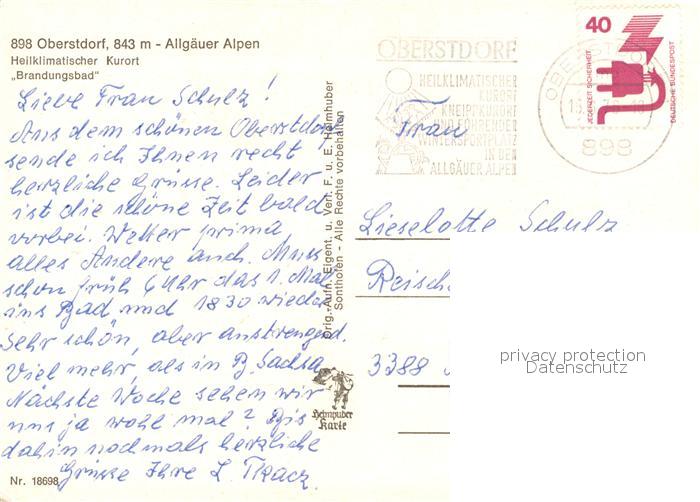 898 Oberstdorf, 843 m - Allgäuer Alpen
Heilklimatischer Kurort
„Brandungsbad"
Liebe Frau Schulz!
Aus dem schönen Oberstdorf
sende ich Ihnen recht
herzliche Grüsse. Leider
ist die schöne Zeit bald
vorbei. Wetter prima,
alles Andere auch. Muss
schon früh 6 Uhr das 1. Mal
ins Bad und 1830 wieder
sehr schön, aber anstrengend.
Viel mehr, als in B. Sachsa
Nächste Woche sehen wir
uns ja wohl mal? Bis
dahin nochmals herzliche
Grüsse Ihre L. Tkacz.
Nr. 18698
Orig.-Aufn. Eigent. u. Verl. F. u. E. Heimhuber
Sonthofen - Alle Rechte vorbehalten
Heimhuber
Karte
OBERSTDORF
HEILKLIMATISCHER
KURORT
KNEIPPKURORT
UND FÜHRENDER
WINTERSPORTPLATZ
IN DEN
ALLGÄUER ALPEN
898
40
JEDERZEIT SICHERHEIT
DEUTSCHE BUNDESPOST
Frau
Lieselotte Schulz
Reisch
3388
privacy protection
Datenschutz